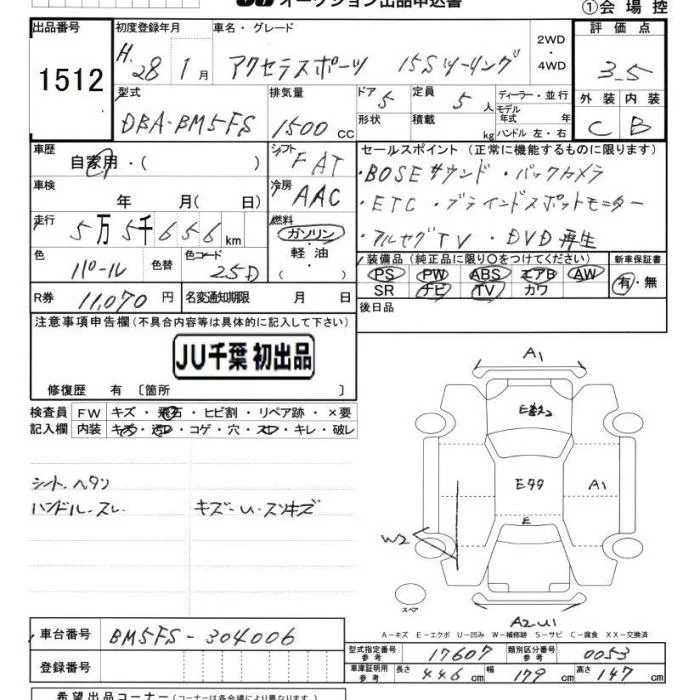 オークション出品申込書
①会場控
出品番号 初度登録年月 車名・グレード 評価点
1512 H.28 1月 アクセラスポーツ 15Sツーリング 2WD・4WD 3.5
型式 排気量 ドア 定員 ディーラー・並行 外装 内装
DBA-BM5FS 1500cc 5 5人 モデル年式 年 C B
形状 積載 kg ハンドル 左・右
車歴 自家用・( ) シフト FAT セールスポイント (正常に機能するものに限ります)
車検 年 月( 日) 冷房 AAC ・BOSEサウンド・バックカメラ
走行 5万5千656km 燃料 ガソリン・軽油・ ・ETC・ブラインドスポットモニター
・フルセグTV・DVD再生
色 パール 色替 色コード 25D 装備品 (純正品に限り○をつけてください) 新車保証書
PS PW ABS エアB AW 有・無
SR ナビ TV カワ
R券 11,070円 名変通知期限 月 日 後日品
注意事項申告欄(不具合内容等は具体的に記入して下さい)
JU千葉 初出品
修復歴 有〔箇所 〕
検査員 FW キズ・飛石・ヒビ割・リペア跡・×要
記入欄 内装 キズ・汚レ・コゲ・穴・スレ・キレ・破レ
シート.ヘタリ
ハンドル.スレ キズ-U.スリキズ
A1
E
E77 A1
E
W2
スペア
A2.U1
A-キズ E-エクボ U-凹み W-補修跡 S-サビ C-腐食 XX-交換済
車台番号 BM5FS-304006 型式指定番号 参考 17607 類別区分番号 参考 0053
登録番号 車庫証明用 参考 長さ 446cm 幅 179cm 高さ 147cm
希望出品コーナー (コーナーは各会場により異なります)